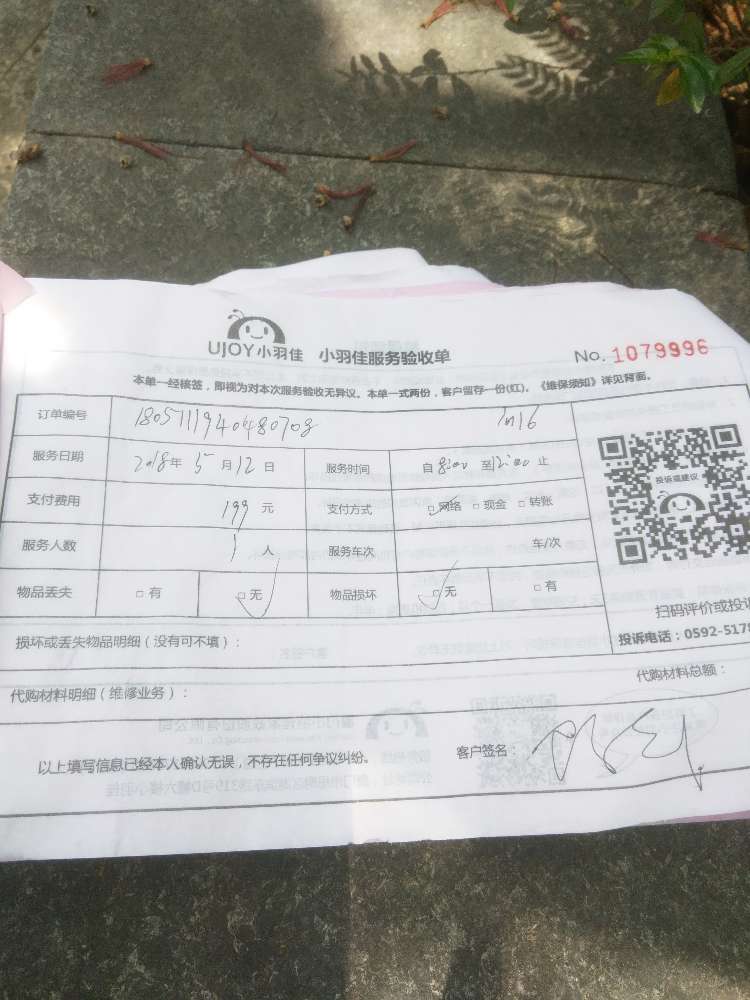 UJOY小羽佳 小羽佳服务验收单 No. 1079996
本单一经核签，即视为对本次服务验收无异议。本单一式两份，客户留存一份(红)。《维保须知》详见背面。
订单编号
服务日期 2018年 5月12日 服务时间 自 8:00 至 12:00 止
支付费用 199 元 支付方式 □网络 □现金 □转账
服务人数 1 人 服务车次 车/次
物品丢失 □ 有 □ 无 物品损坏 □ 无 □ 有
投诉或建议
扫码评价或投诉
投诉电话：0592-5178
损坏或丢失物品明细（没有可不填）：
代购材料明细（维修业务）： 代购材料总额：
以上填写信息已经本人确认无误，不存在任何争议纠纷。 客户签名：